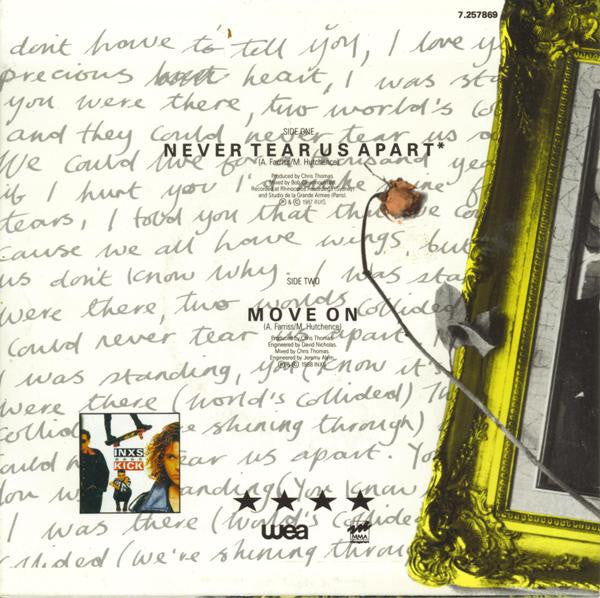 7.257869
don't have to tell you, I love y
precious heart, I was sta
you were there, two world's co
and they could never tear us a
SIDE ONE
NEVER TEAR US APART*
(A. Farriss/M. Hutchence)
We could live for thousand yea
Produced by Chris Thomas.
Mixed by Bob
if hurt you I'd of
Recorded at Rhinoceros Recordings (Sydney)
and Studio de la Grande Armee (Paris).
℗ & © 1987
tears, I told you that
cause we all have wings, but
us don't know why. I was sta
SIDE TWO
were there, two worlds collided
MOVE ON
(A. Farriss/M. Hutchence)
could never tear us apart
Produced by Chris Thomas.
Engineered by David Nicholas.
Mixed by Chris Thomas.
Engineered by Jeremy
℗ & © 1988 INXS
I was standing, you (know it's
were there (world's collided) Th
collid re shining through)
ould n ar us apart. Yo
INXS
KICK
tanding (You know
I was there (world's collided
llided (we're shining throug
wea
MMA